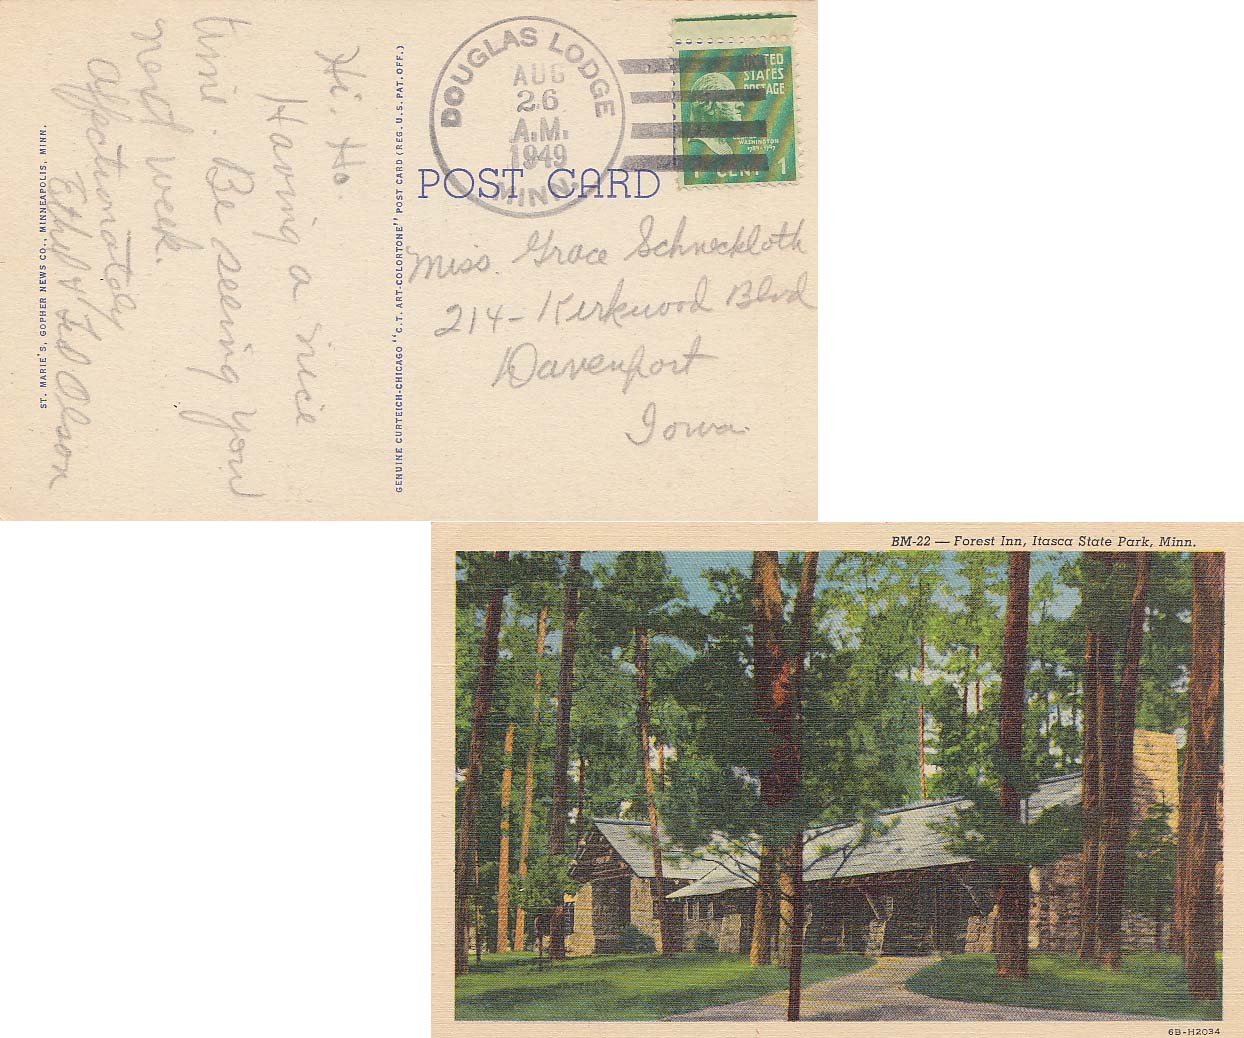 Hi, Ho.
Having a nice
time. Be seeing you
next week.
Affectionately
Ethel & Ted Olson
ST. MARIE'S, GOPHER NEWS CO., MINNEAPOLIS, MINN.
GENUINE CURTEICH-CHICAGO "C.T. ART-COLORTONE" POST CARD (REG. U.S. PAT. OFF.)
DOUGLAS LODGE
AUG
26
A.M.
1949
MINN.
UNITED
STATES
POSTAGE
WASHINGTON
1789-1797
1 CENT 1
POST CARD
Miss. Grace Schneckloth
214- Kirkwood Blvd
Davenport
Iowa.
BM-22 — Forest Inn, Itasca State Park, Minn.
6B-H2034